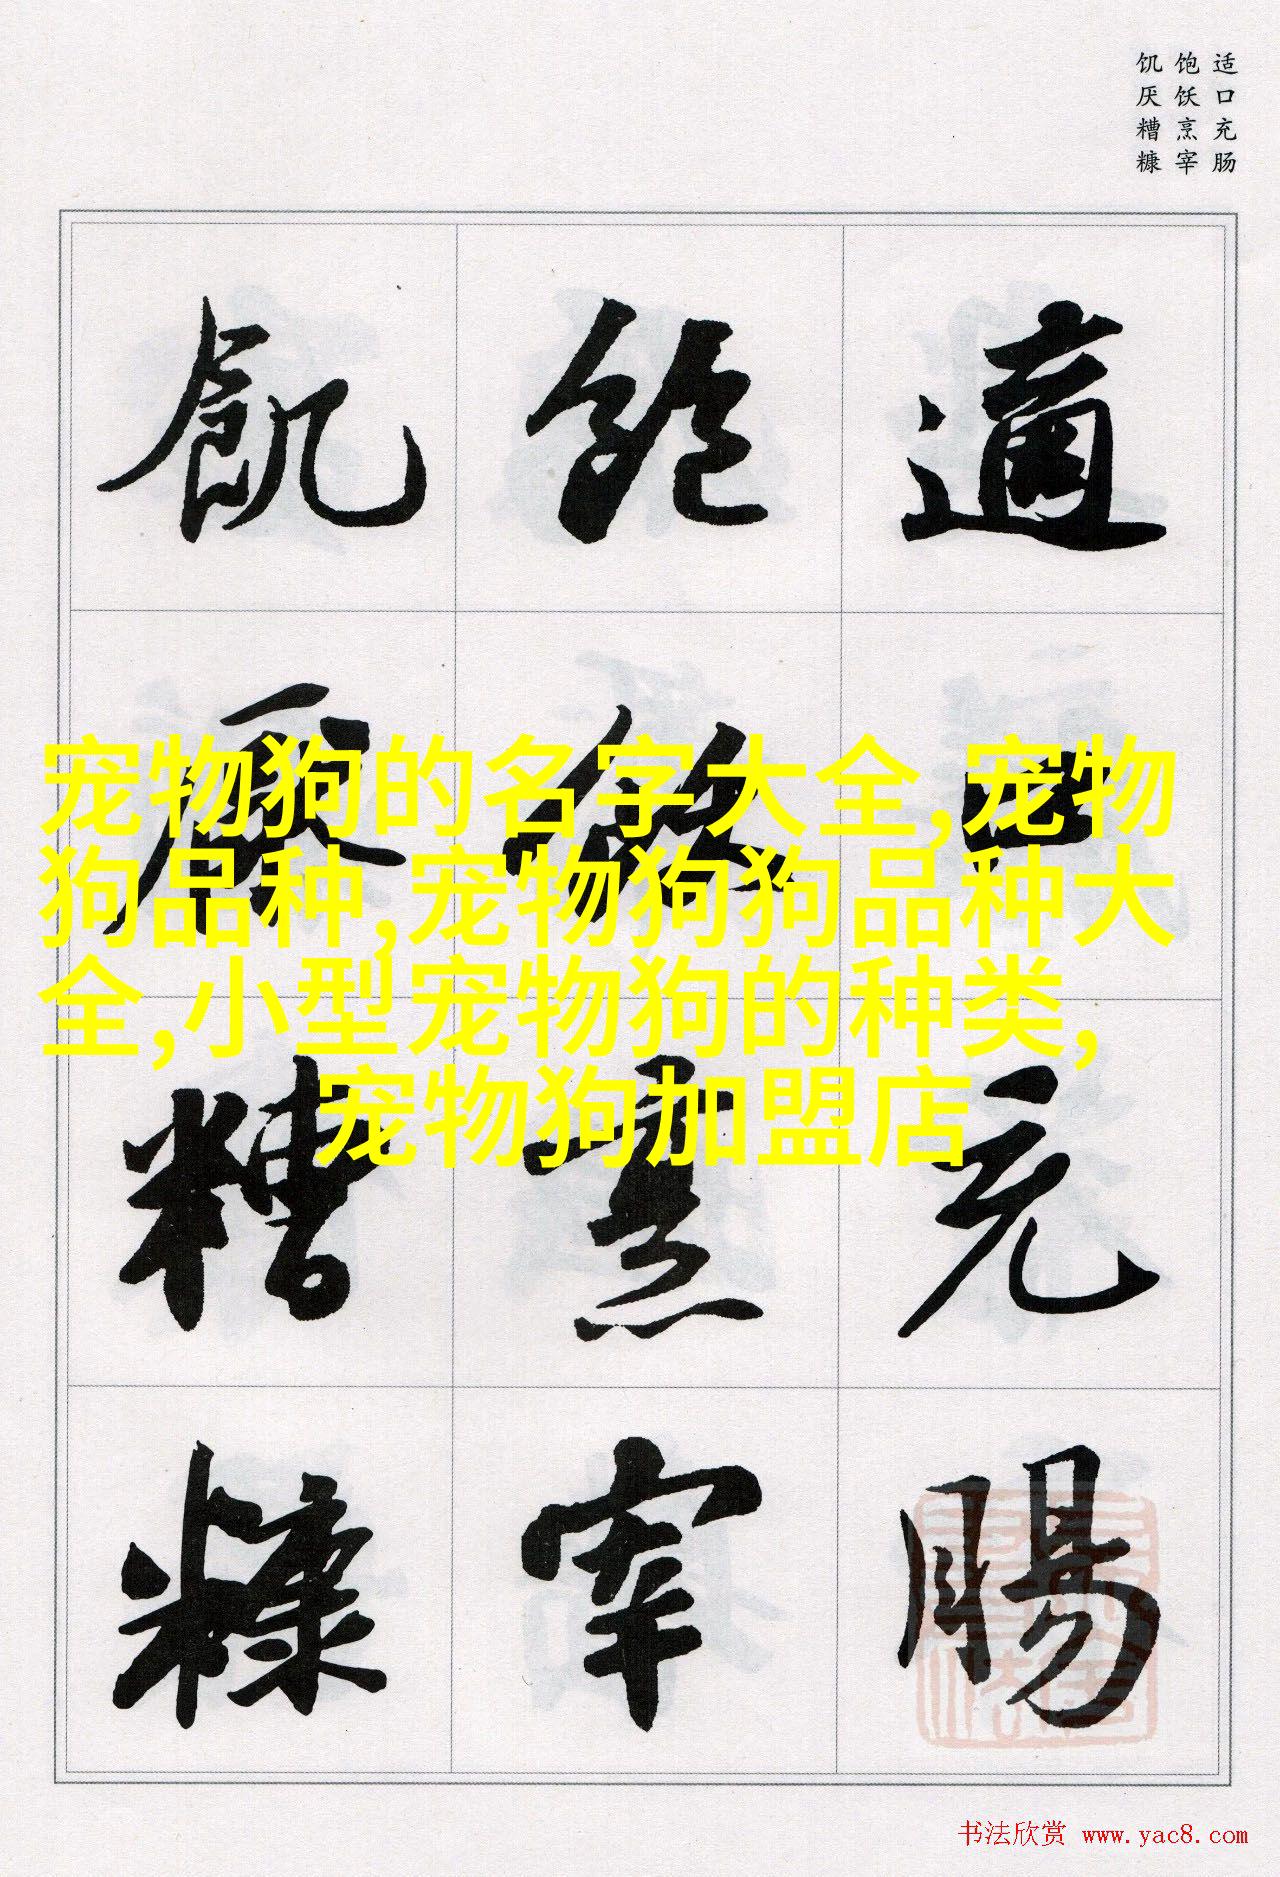 适口充肠
饱饫烹宰
饥厌糟糠
適口充腸
飽飫烹宰
飢厭糟糠
宠物狗的名字大全,宠物
狗品种,宠物狗狗品种大
全,小型宠物狗的种类,
宠物狗加盟店
书法欣赏 www.yac8.com